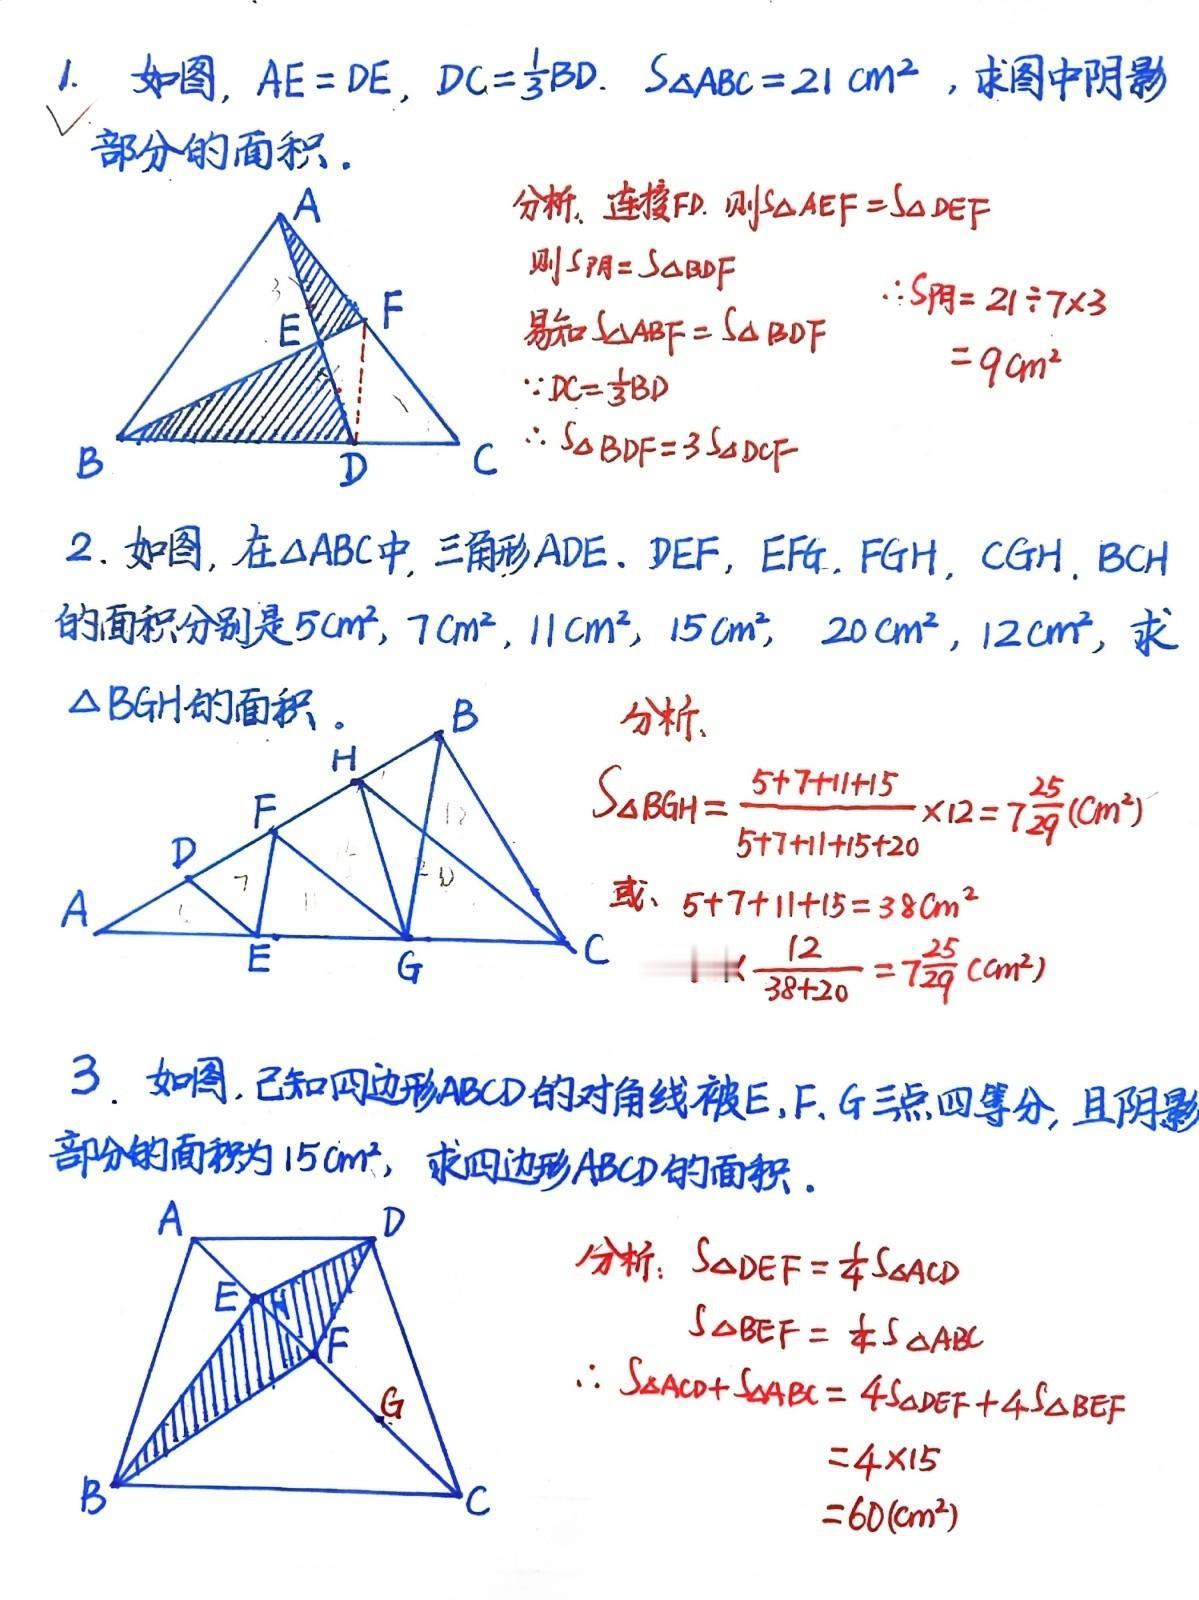 1. 如图, AE=DE, DC=⅓BD. S△ABC=21cm², 求图中阴影
部分的面积.
A
E
F
B
D
C
3
分析、连接FD. 则S△AEF=S△DEF
则S阴=S△BDF
易知S△ABF=S△BDF
∵DC=⅓BD
∴S△BDF=3S△DCF
∴S阴=21÷7×3
=9cm²
2. 如图, 在△ABC中, 三角形ADE、DEF, EFG, FGH, CGH, BCH
的面积分别是5cm², 7cm², 11cm², 15cm², 20cm², 12cm², 求
△BGH的面积.
B
H
F
D
A
E
G
C
7
11
15
20
12
分析、
S△BGH=(5+7+11+15)/(5+7+11+15+20)×12=7 25/29(cm²)
或、5+7+11+15=38cm²
12/(38+20)=7 25/29(cm²)
3. 如图, 已知四边形ABCD的对角线被E、F、G三点四等分, 且阴影
部分的面积为15cm², 求四边形ABCD的面积.
A
D
E
H
F
G
B
C
分析: S△DEF=¼S△ACD
S△BEF=¼S△ABC
∴S△ACD+S△ABC=4S△DEF+4S△BEF
=4×15
=60(cm²)